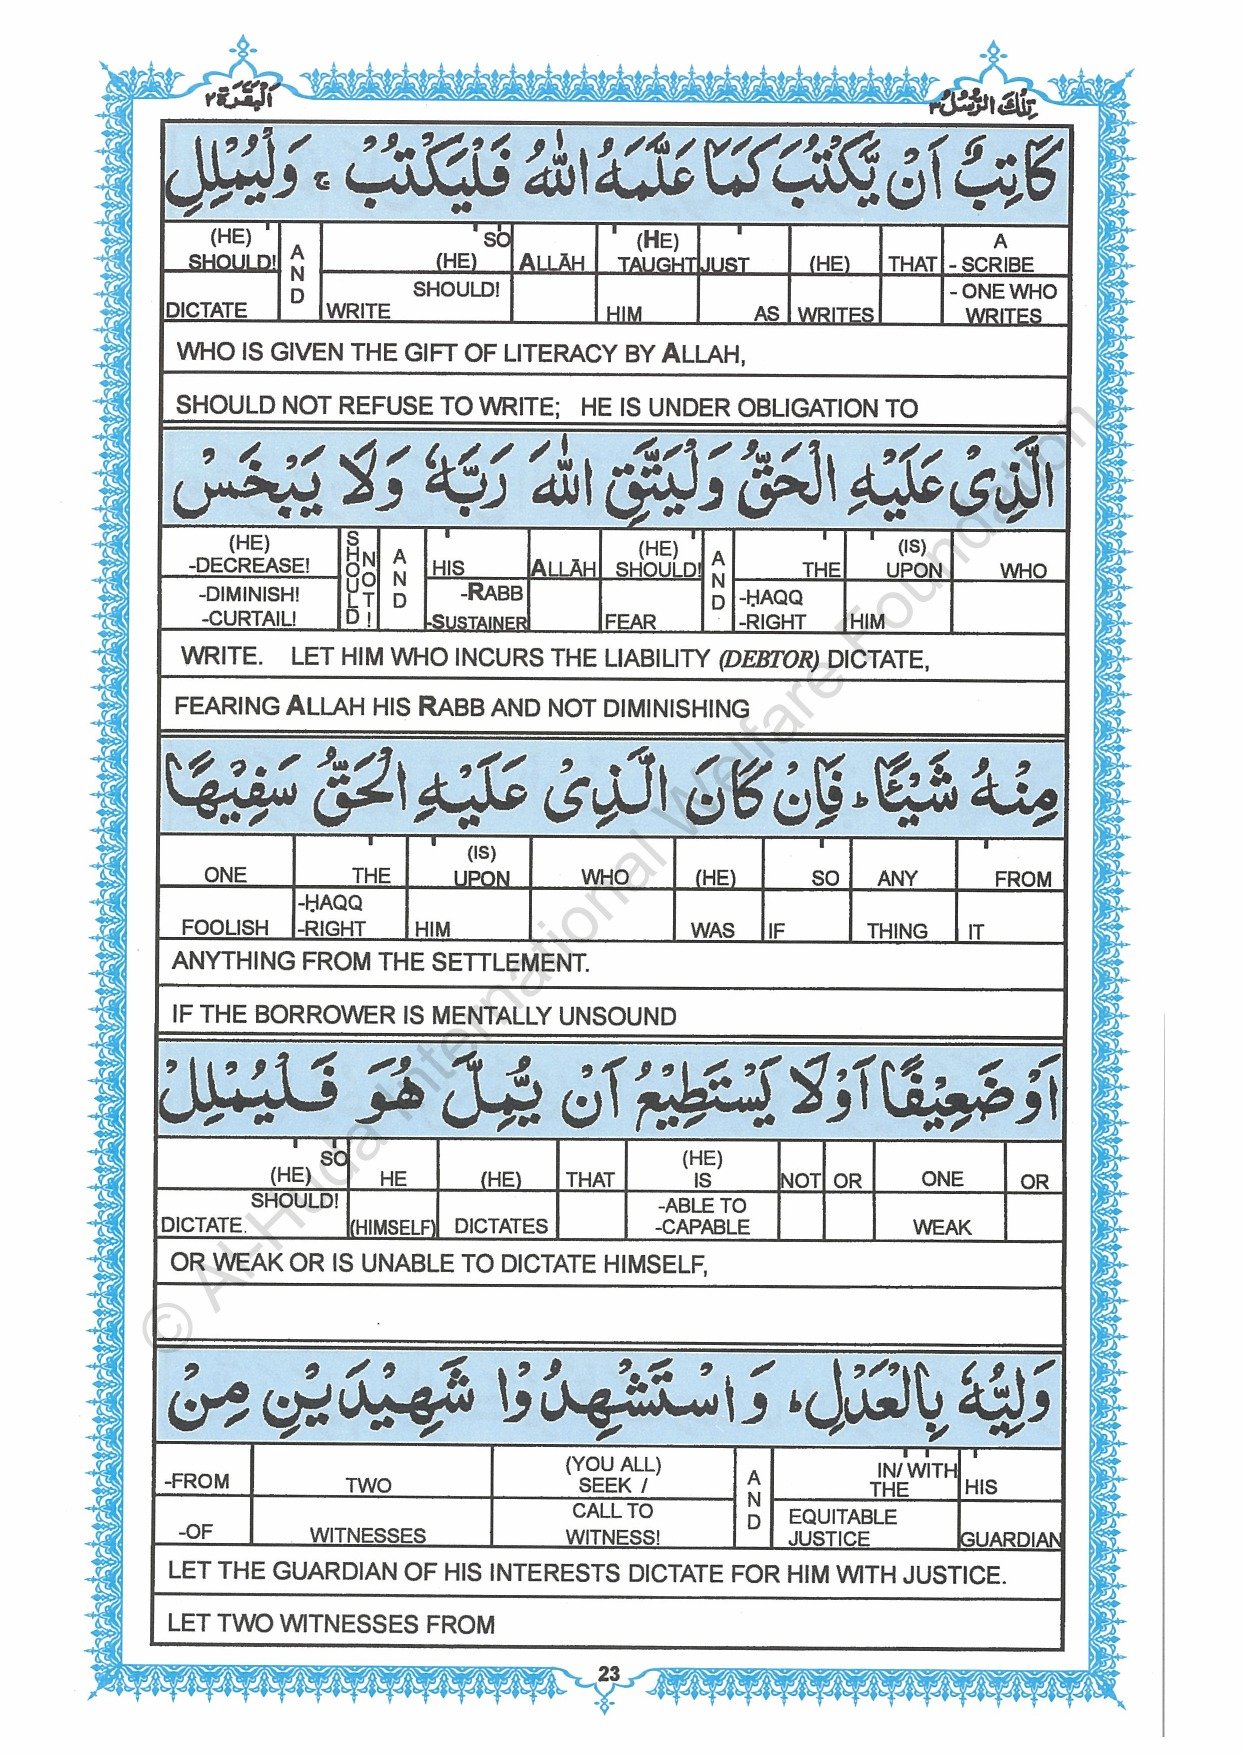 اَلْبَقَرَة ٢
تِلْكَ الرُّسُلُ ٣
كَاتِبٌ اَنْ يَّكْتُبَ كَمَا عَلَّمَهُ اللّٰهُ فَلْيَكْتُبْ ۚ وَلْيُمْلِلِ
(HE) SHOULD! A N D SO (HE) ALLĀH (HE) TAUGHT JUST (HE) THAT A - SCRIBE
DICTATE WRITE SHOULD! HIM AS WRITES - ONE WHO WRITES
WHO IS GIVEN THE GIFT OF LITERACY BY ALLAH,
SHOULD NOT REFUSE TO WRITE; HE IS UNDER OBLIGATION TO
الَّذِىْ عَلَيْهِ الْحَقُّ وَلْيَتَّقِ اللّٰهَ رَبَّهٗ وَلَا يَبْخَسْ
(HE) -DECREASE! SHOULD NOT! A N D HIS ALLĀH (HE) SHOULD! A N D THE (IS) UPON WHO
-DIMINISH! -CURTAIL! -RABB -SUSTAINER FEAR -ḤAQQ -RIGHT HIM
WRITE. LET HIM WHO INCURS THE LIABILITY (DEBTOR) DICTATE,
FEARING ALLAH HIS RABB AND NOT DIMINISHING
مِنْهُ شَيْئًا ؕ فَاِنْ كَانَ الَّذِىْ عَلَيْهِ الْحَقُّ سَفِيْهًا
ONE THE (IS) UPON WHO (HE) SO ANY FROM
FOOLISH -ḤAQQ -RIGHT HIM WAS IF THING IT
ANYTHING FROM THE SETTLEMENT.
IF THE BORROWER IS MENTALLY UNSOUND
اَوْ ضَعِيْفًا اَوْ لَا يَسْتَطِيْعُ اَنْ يُّمِلَّ هُوَ فَلْيُمْلِلْ
SO (HE) HE (HE) THAT (HE) IS NOT OR ONE OR
SHOULD! DICTATE. (HIMSELF) DICTATES -ABLE TO -CAPABLE WEAK
OR WEAK OR IS UNABLE TO DICTATE HIMSELF,
وَلِيُّهٗ بِالْعَدْلِ ؕ وَاسْتَشْهِدُوْا شَهِيْدَيْنِ مِنْ
-FROM TWO (YOU ALL) SEEK / A N D IN/ WITH THE HIS
-OF WITNESSES CALL TO WITNESS! EQUITABLE JUSTICE GUARDIAN
LET THE GUARDIAN OF HIS INTERESTS DICTATE FOR HIM WITH JUSTICE.
LET TWO WITNESSES FROM
23
© Al-Huda International Welfare Foundation